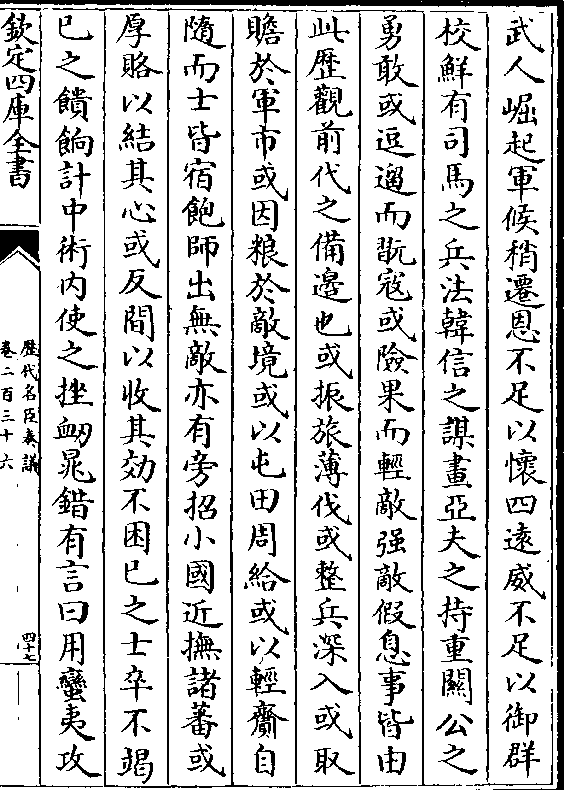 武人崛起軍候稍遷恩不足以懷四遠威不足以御群
校鮮有司馬之兵法韓信之謀畫亞夫之持重關公之
勇敢或逗遛而翫寇或險果而輕敵强敵假息事皆由
此歴觀前代之備邊也或振旅薄伐或整兵深入或取
贍於軍市或因粮於敵境或以屯田周給或以輕齎自
隨而士皆宿飽師出無敵亦有旁招小國近撫諸蕃或
厚賂以結其心或反間以收其効不困已之士卒不竭
已之饋餉計中術内使之挫衂鼂錯有言曰用蠻夷攻
欽定四庫全書
歴代名臣奏議
卷二百三十六
四十七